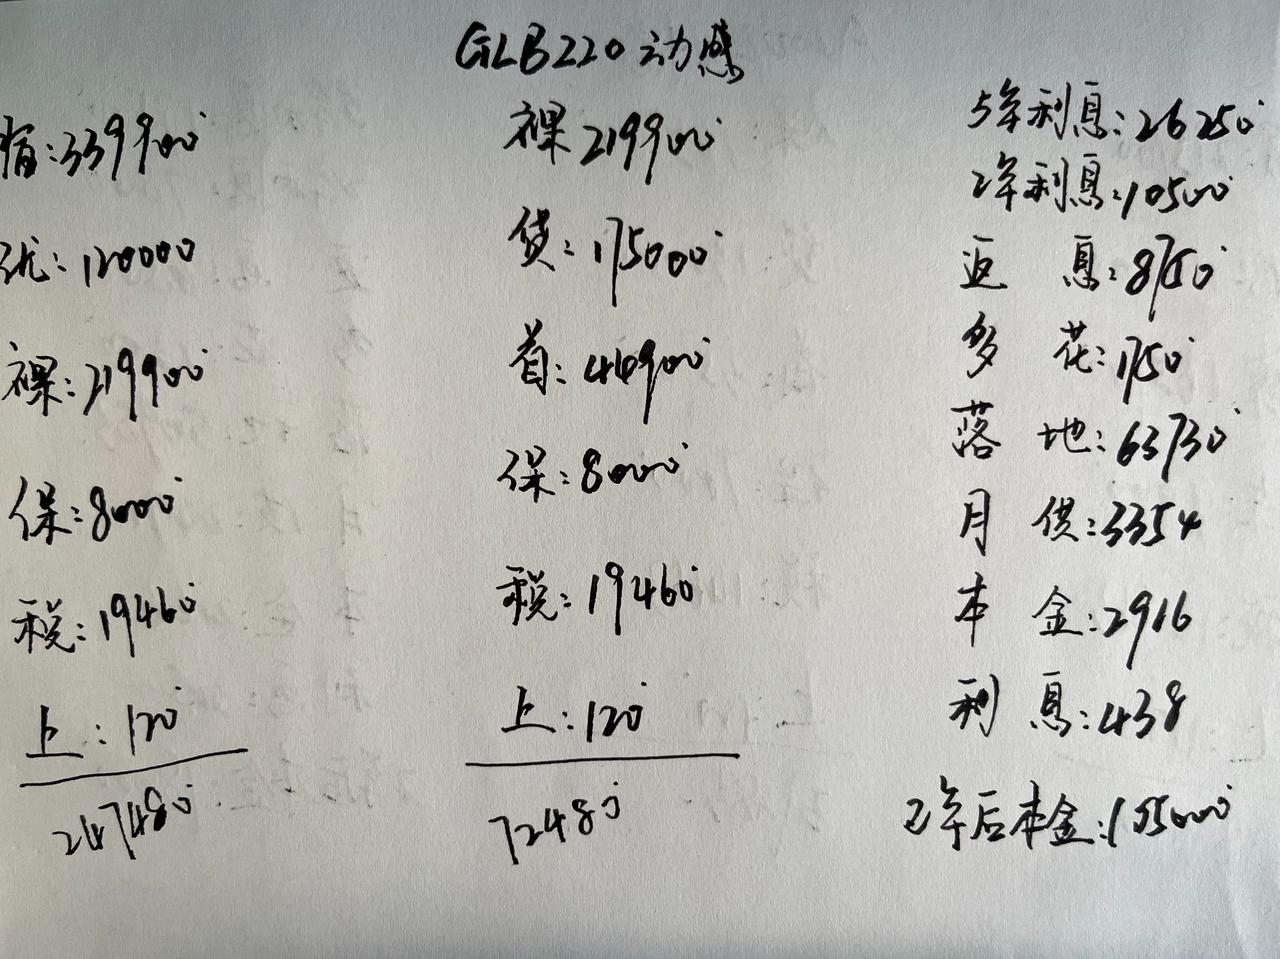 GLB220 动感
指:339900
优:120000
裸:219900
保:8000
税:19460
上:120
247480
裸219900
贷:175000
首:44900
保:8000
税:19460
上:120
72480
5年利息:26250
2年利息:10500
返息:8750
多花:1750
落地:63730
月供:3354
本金:2916
利息:438
2年后本金:105000